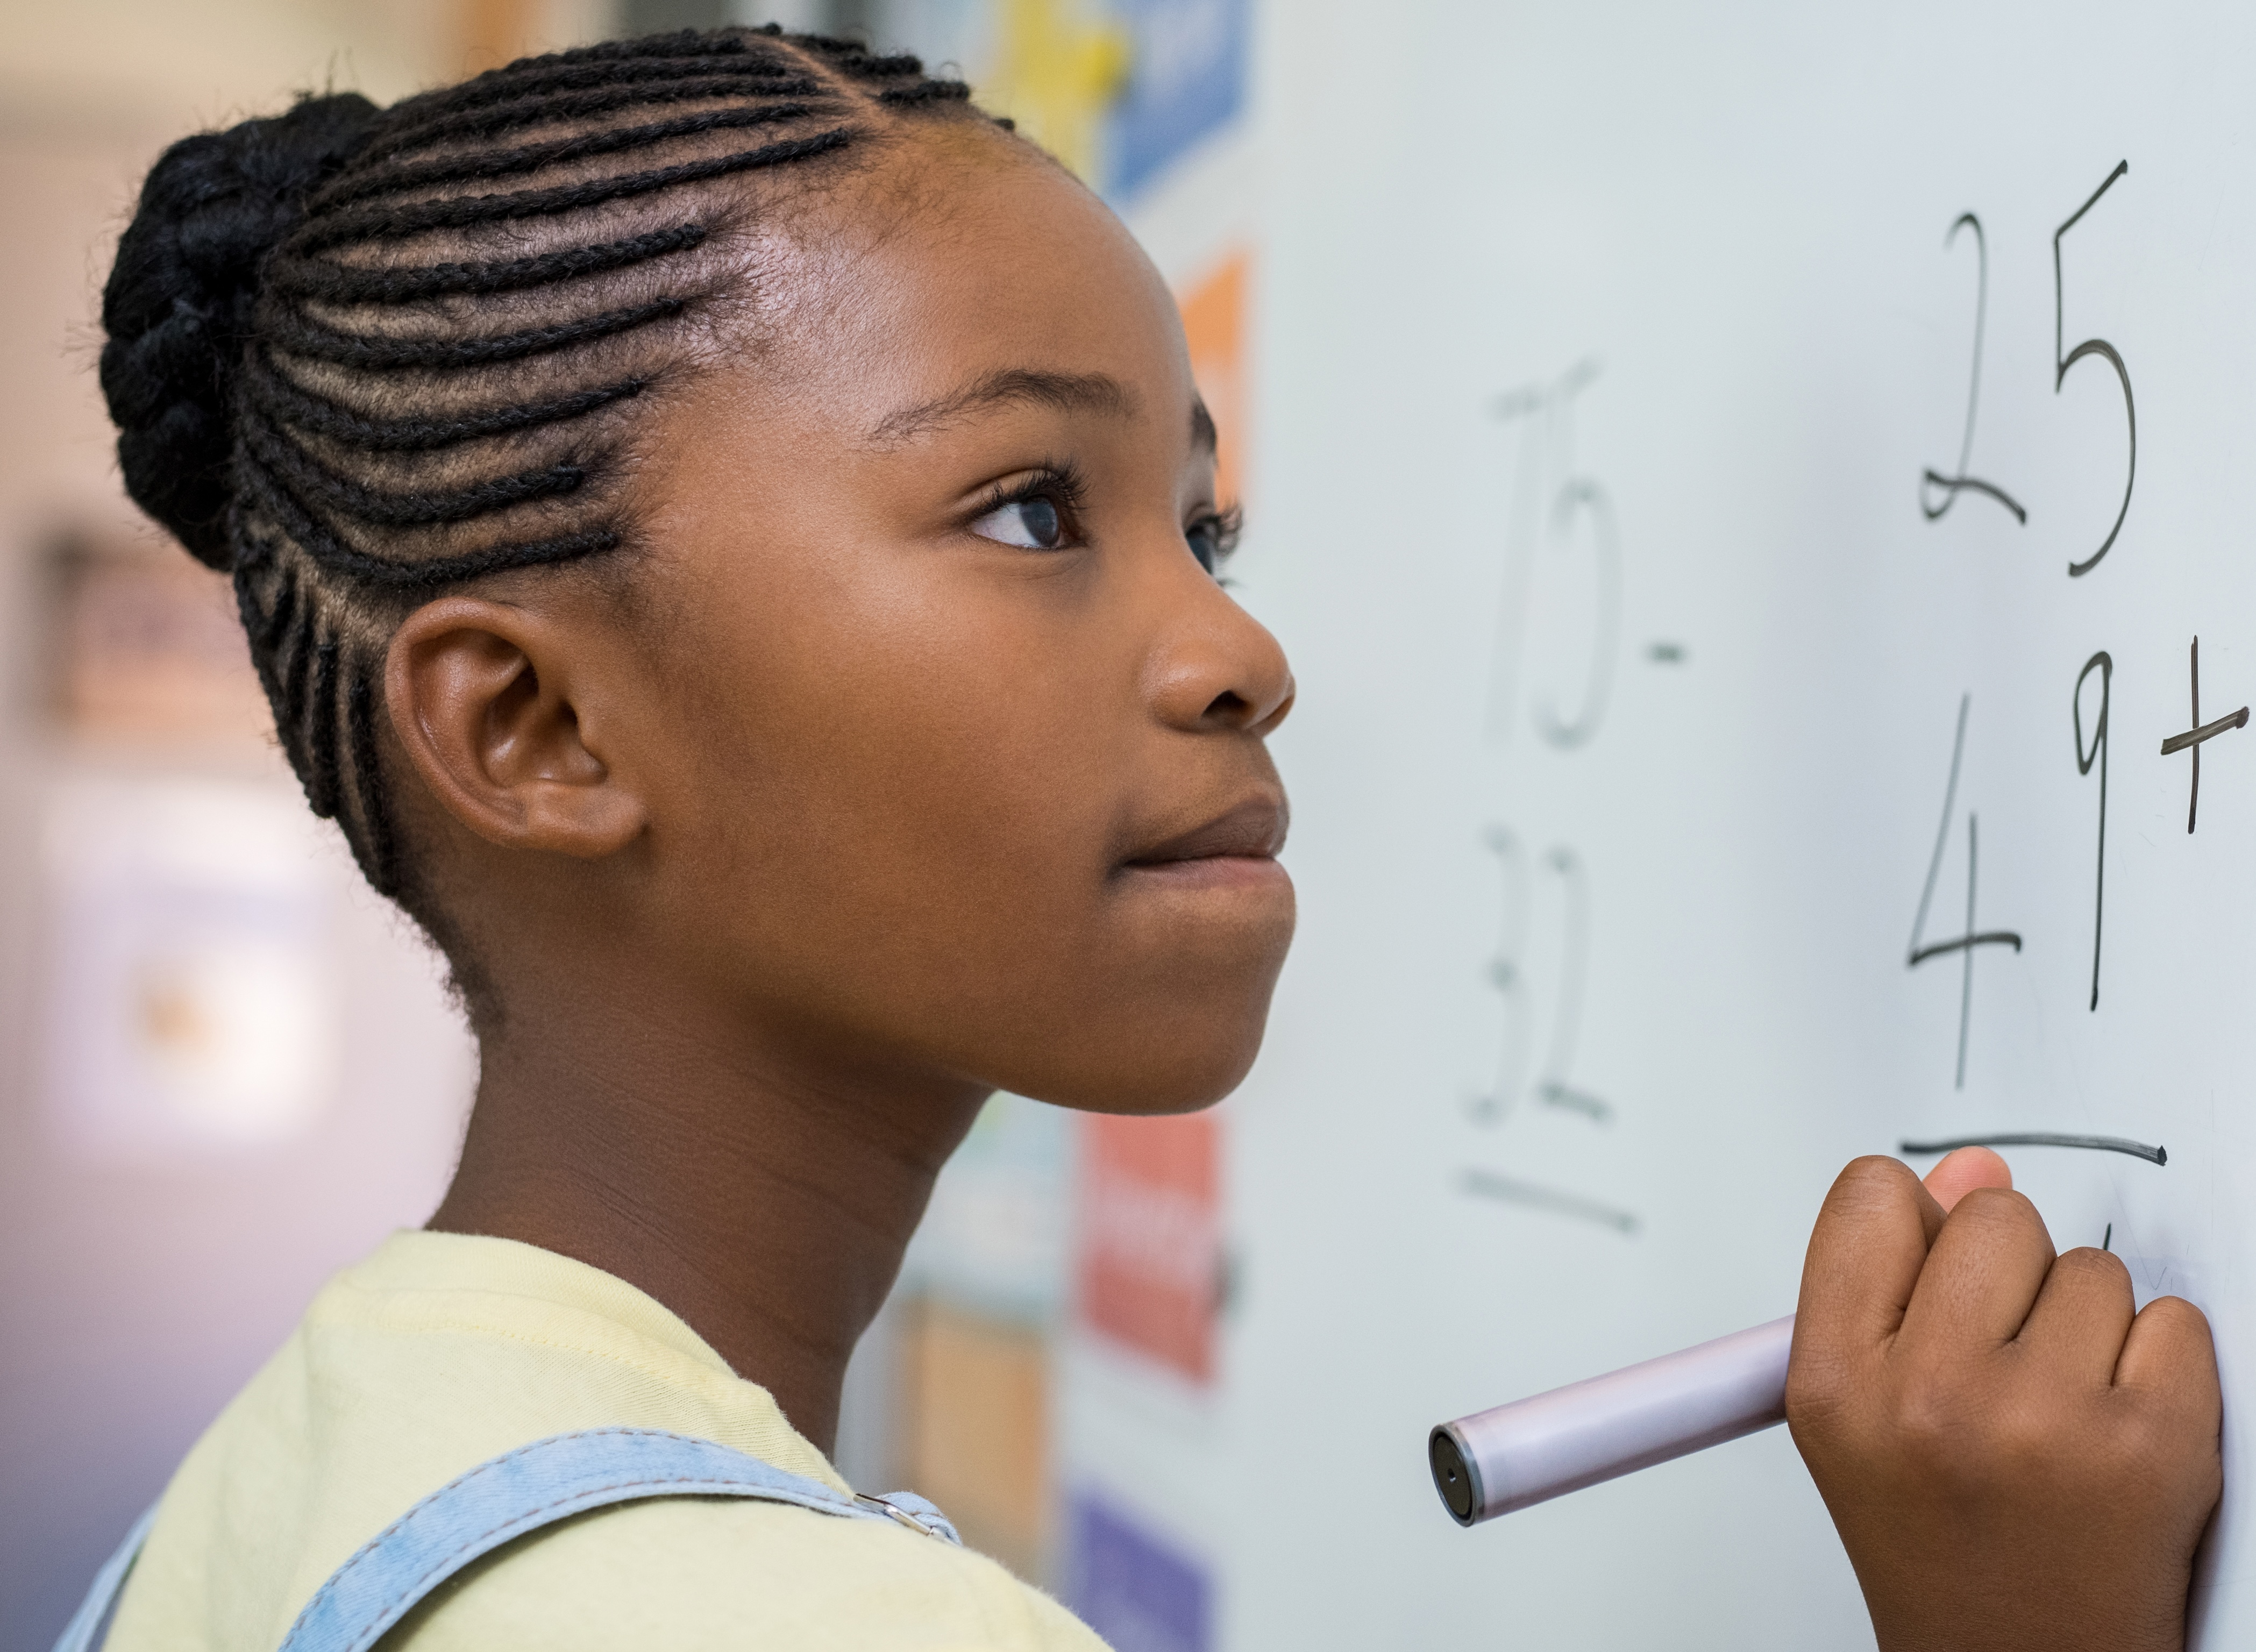 75 -
32
25
49+